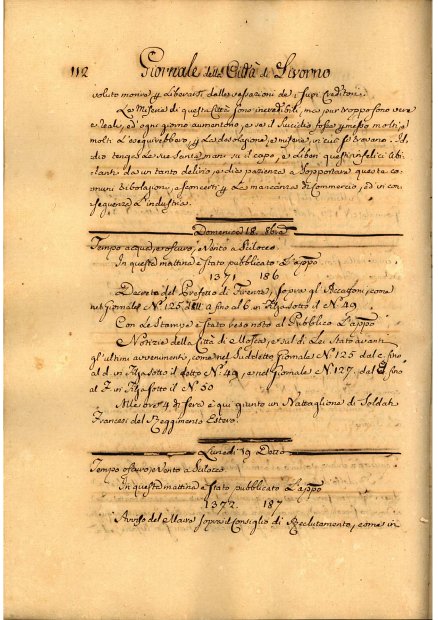 112 Giornale della Città di Livorno
voluto morire p Liberarsi dalle vessazioni de i suoi Creditori.
Le Miserie di questa Città sono incredibili, ma pur troppo sono vere
e reali, ed ogni giorno aumentono, e se il Suicidio fosse permesso molti, e
molti L'eseguirebbero p La desolazione, e miserie, in cui si trovano. Id-
dio tenga Le sue Sante mani su il capo, e Liberi questi infelici Abi-
tanti da un tanto delirio, e dia pazienza a Sopportare queste co-
muni tribolazioni, e sconcerti p La mancanza di Commercio, ed in con-
sequenza L'industria.
Domenica 18. 8bre
Tempo acqua, e oscuro, e Vento a Scilocco
In questa mattina è Stato pubblicato L'appo
1371 186
Decreto del Prefetto di Firenze, sopra gli Accattoni, come
nel giornale N.° 125, a fino al 6 in Filza sotto il N.° 49
Con Le Stampe è Stato reso noto al Pubblico L'appo
Notizie della Città di Mosca, e sul di Lei Stato avanti
gl'ultimi avvenimenti, come nel Sud.etto giornale N.° 125 dal c. fino
al d. in Filza sotto il detto N.° 49, e nel giornale N.° 127. dal fino
al F in Filza sotto il N.° 50
Alle ore 4 di sera è qui giunto un Battaglione di Soldati
Francesi del Reggimento Estero.
Lunedì 19 Detto
Tempo oscuro, e Vento a Scilocco
In questa mattina è Stato pubblicato L'appo
1372. 187
Avviso del Maire sopra il Consiglio di Reclutamento, come in